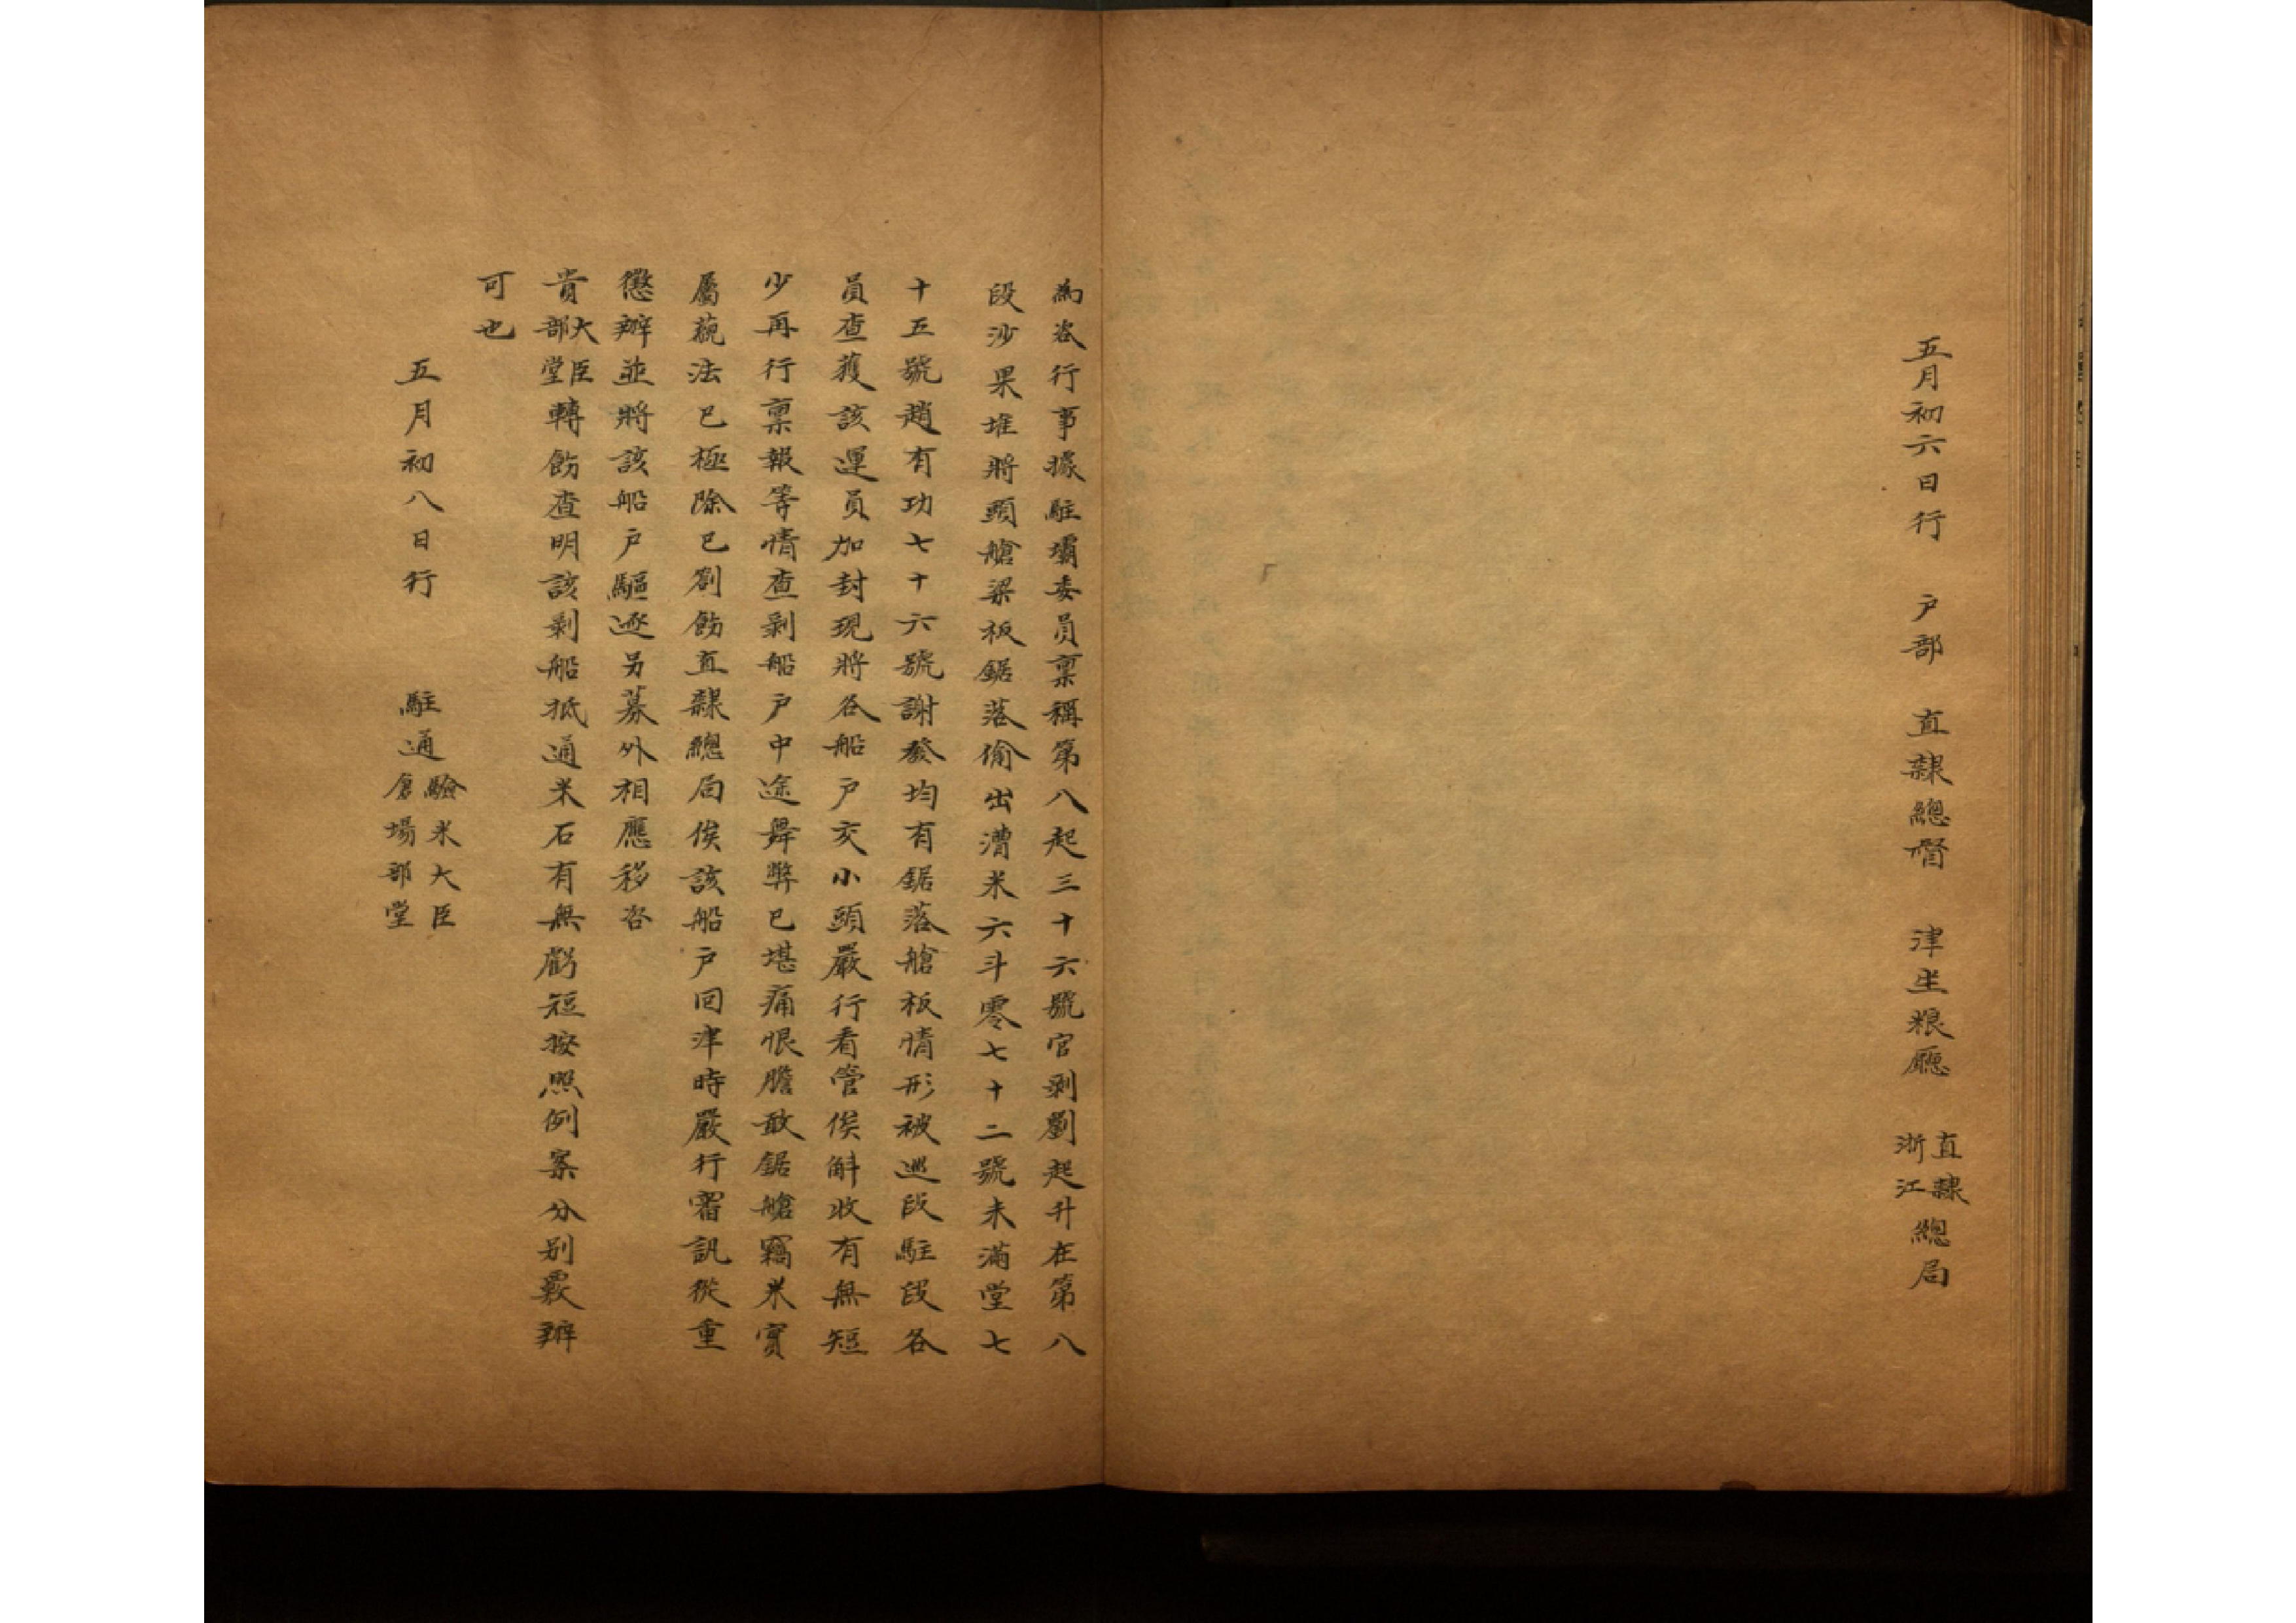 五月初六日行 戶部 直隸總督 津坐粮廳 直隸浙江總局
為咨行事據駐壩委員稟稱第八起三十六號官剝劉起升在第八
段沙果堆將頭艙梁板鋸落偷出漕米六斗零七十二號未滿堂七
十五號趙有功七十六號謝發均有鋸落艙板情形被巡段駐段各
員查獲該運員加封現將各船戶交小頭嚴行看管俟斛收有無短
少再行稟報等情查剝船戶中途舞弊已堪痛恨膽敢鋸艙竊米實
屬藐法已極除已劄飭直隸總局俟該船戶回津時嚴行審訊從重
懲辦並將該船戶驅逐另募外相應移咨
貴大臣部堂轉飭查明該剝船抵通米石有無虧短按照例案分別覈辦
可也
五月初八日行 駐通驗米大臣倉場部堂